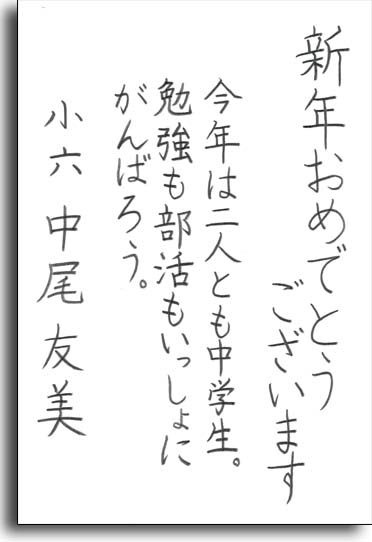 新年おめでとう
ございます
今年は二人とも中学生。
勉強も部活もいっしょに
がんばろう。
小六 中尾友美